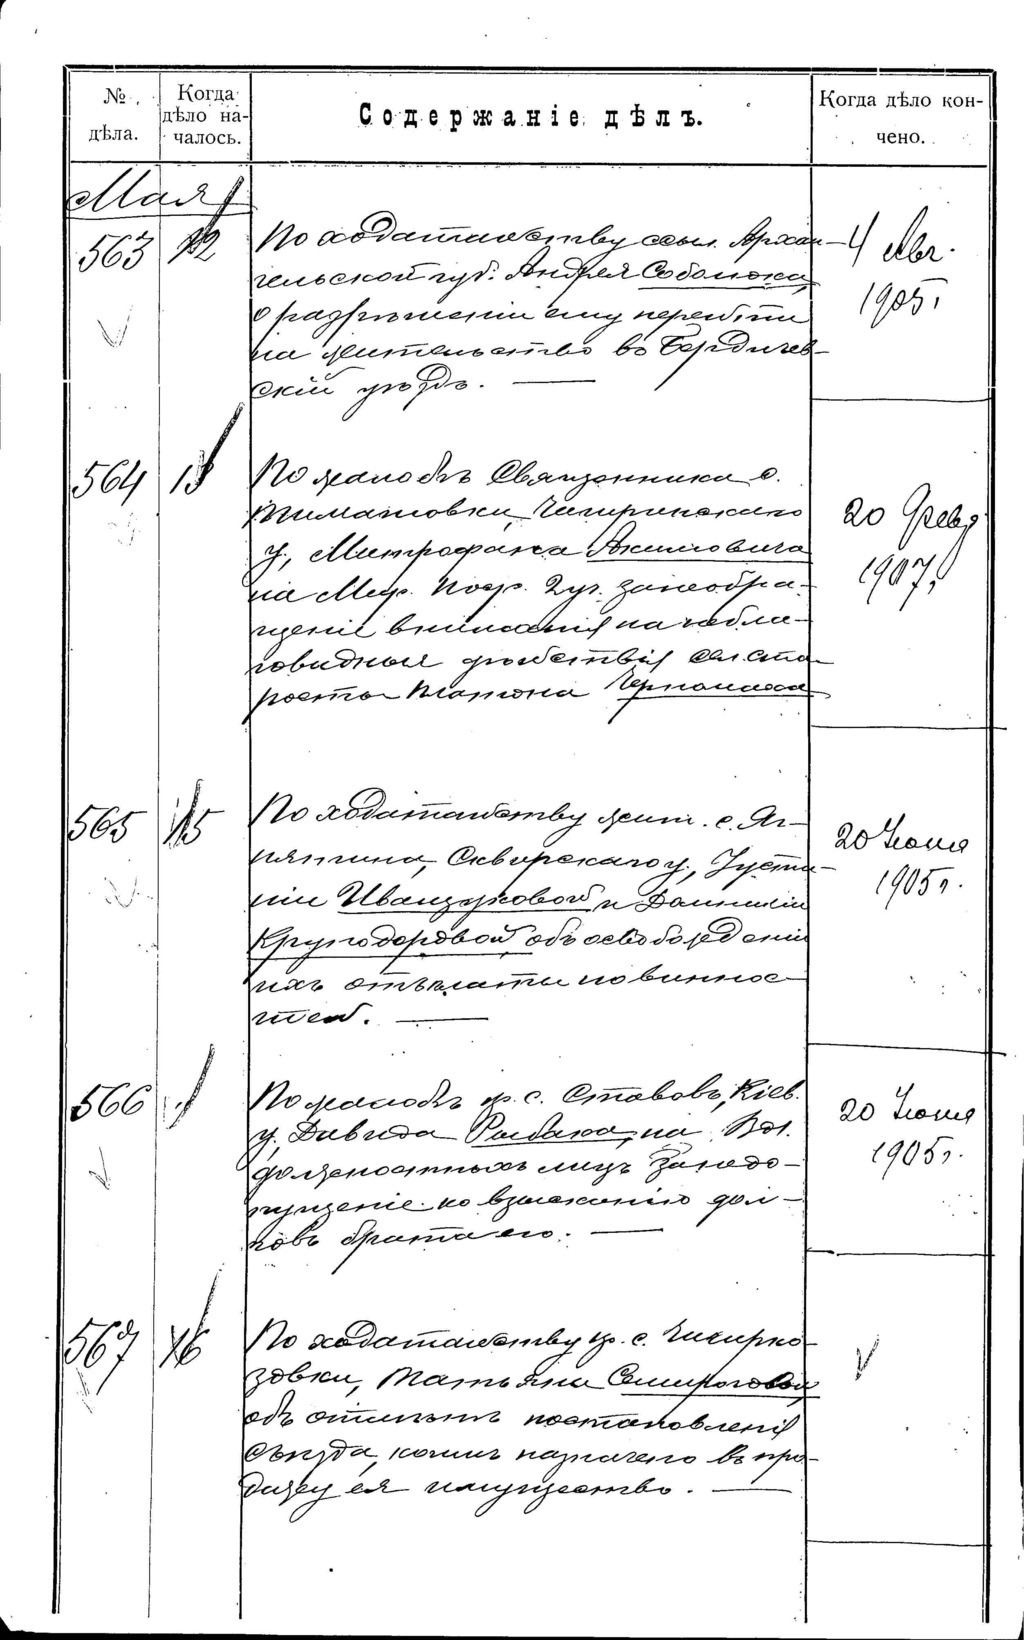 № дѣла.
Когда дѣло началось.
Содержаніе дѣлъ.
Когда дѣло кончено.
Мая
563
12
По ходатайству ссыл. Архан-
гельской губ. Андрея Соболюка,
о разрѣшеніи ему перейти
на жительство въ Бердичев-
скій уѣздъ.
4 Авг.
1905 г.
564
13
По жалобѣ Священника с.
Тимашовки, Чигиринскаго
у., Митрофана Якимовича
на Мир. Поср. 2 уч. за необра-
щеніе вниманія на небла-
говидныя дѣйствія сел. ста-
росты Платона
20 Февр.
1907 г.
565
15
По ходатайству жит. с. Яг-
нятина, Сквирскаго у., Густи-
ніи Иванцуковой и
объ освобожденіи
ихъ отъ платы повиннос-
тей.
20 Іюня
1905 г.
566
По жалобѣ кр. с. Ставовъ, Кіев.
у. Давида Рыбака, на Вол.
должностныхъ лицъ за недо-
пущеніе ко взысканію дол-
говъ брата его.
20 Іюня
1905 г.
567
16
По ходатайству кр. с. Чигирко-
зовки, Татьяны
объ отмѣнѣ постановленія
Съѣзда, коимъ назначено въ про-
дажу ея имущество.